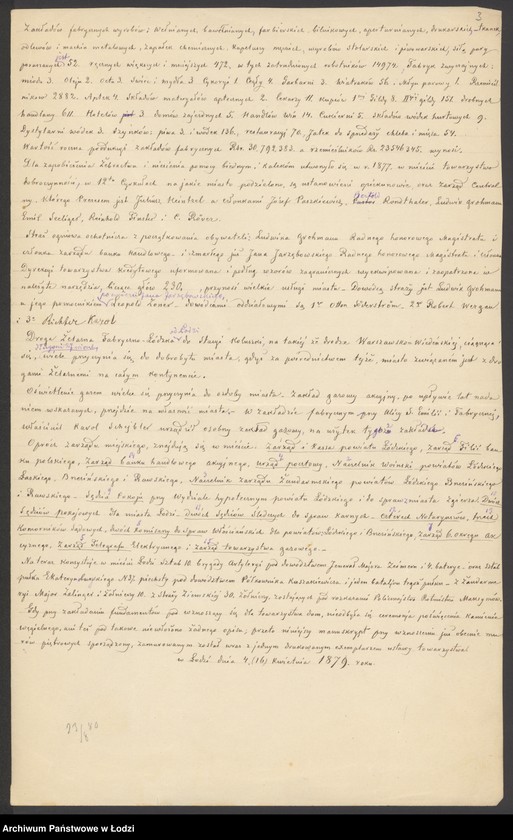 3
Zakładów fabrycznych wyrobów: Wełnianych, bawełnianych, farbierskich, blichowych, apreturnianych, drukarskich, tkanin,
odlewów i machin metalowych, zapałek chemicznych. Kapeluszy męzkich, wyrobów stolarskich i piwowarskich, siłą pary
poruszanych jest 52. ręcznych większych i mniejszych 472, w tych zatrudnionych robotników 14974. Fabryk zwyczajnych:
miodu 3. Oleju 2. Octu 3. świec i mydła 3. Cykoryi 1. Cegły 4. Garbarni 3. Wiatraków 5. Młyn parowy 1. Rzemieśl-
ników 2882. Aptek 4. Składów materyałów aptecznych 2. Lekarzy 11. Kupców 1ej Gildy 8. IIej gildy 151. drobnych
handlowy 611. Hotelów 3. domów zajezdnych 5. Handlów Win 14. Cukierni 5. składów wódek hurtowych 9.
Dystylarni wódek 3. Szynków: piwa 2. i wódek 136, restauracyj 70. Jatek do sprzedaży chleba i mięsa 54.
Wartość roczna produkcyi zakładów fabrycznych Rs. 30,792,353. a rzemieślników Rs. 2354634. wynosi.
Dla zapobieżenia Żebractwa i niesienia pomocy biednym i kalekom utworzyło się w r. 1877. w mieście towarzystwo
dobroczynności, w 12tu Cyrkułach na jakie miasto podzielono, są ustanowieni opiekunowie, oraz zarząd Central-
ny. Którego Prezesem jest Juliusz Heinzel a członkami Józef Paszkiewicz, Adolf Rondthaler, Ludwig Grohmann
Emil Seeliger, Reinhold Finster i C. Röver.
Straż ogniowa ochotnicza z początkowania obywateli; Ludwika Grohmana Radnego honorowego Magistratu i
członka zarządu banku Handlowego. i zmarłego już Jana Jarzębowskiego Radnego honorowego Magistratu i członka
Dyrekcyi towarzystwa Kredytowego uformowana i podług wzorów zagranicznych wyćwiczona i zaopatrzona w
należyte narzędzia, licząc głów 230, przynosi wielkie usługi miastu. Dowódzcą straży jest Ludwig Grohmann
a jego pomocnikiem Leopold Zoner. dowódzcami oddziałowymi są 1o Otto Söderström. 2o Robert Wergau
i 3o Richter Karol
Droga Żelazna Fabryczno-Łódzka z Łodzi do stacyi Koluszki, na takiej że drodze Warszawsko-Wiedeńskiej, ciągnąca
się, wiele przyczynia się do dobrobytu miasta, gdyż za pośrednictwem tejże, miasto związanem jest z dro-
gami Żelaznemi na całym kontynencie.
Oświetlenie gazem wielce się przyczynia do ozdoby miasta. Zakład gazowy akcyjny, po upływie lat nada-
niem wskazanych, przejdzie na własność miasta. W Zakładzie fabrycznym przy Ulicy Ś. Emilii i Fabrycznej,
właściciel Karol Scheibler urządził osobny zakład gazowy, na użytek tychże zakładów.
Oprócz zarządu miejskiego, znajdują się w mieście. Zarząd i Kassa powiatu Łódzkiego, zarząd Filii ban-
ku polskiego, Zarząd banku handlowego Akcyjnego, urząd pocztowy, Naczelnik wojenny, powiatów Łódzkiego
Łaskiego. Brzezińskiego i Rawskiego, Naczelnik zarządu Żandarmskiego powiatów Łódzkiego Brzezińskiego
i Rawskiego. Sędzia pokoju przy Wydziale hypotecznym powiatu Łódzkiego i to sprawszy miasta zgierza! Dwóch
sędziów pokojowych dla miasta Łodzi. Dwóch sędziów śledczych do spraw karnych. czterech Notaryuszów, trzech
Komorników sądowych, dwóch Komisarzy do spraw Włościańskich dla powiatów Łódzkiego i Brzezińskiego, zarząd Okręgu ak-
cyznego, Zarząd Telegrafu Elektrycznego i zarząd towarzystwa gazowego.
Na teraz konsystuje w mieście Łodzi Sztab 10. brygady Artyleryi pod dowództwem Jenerał Majora Zacimana i 4. baterye, oraz sztab
pułku Ekaterynburgskiego No 37. piechoty pod dowództwem Półkownika Kazanakiewicza i jeden batalion tegoż pułku. z Żandarme-
ryi Major Zalinger i Żołnierzy 10. z Straży Ziemskiej 30. żołnierzy, zostających pod rozkazami Policmajstra Rotmistrza Maxymowa.
Gdy przy zakładaniu fundamentów pod wznoszący się dla towarzystwa dom, nieodbyła się ceremonja położenia Kamienia
węgielnego, ani też pod takowe niewłożono żadnego opisu; przeto niniejszy manuskrypt przy wznoszeniu już obecnie mu-
rów piętrowych sporządzony, zamurowanym został wraz z jednym drukowanym exemplarzem ustawy towarzystwa
w Łodzi dnia 4. (16) Kwietnia 1879. roku.
Archiwum Państwowe w Łodzi